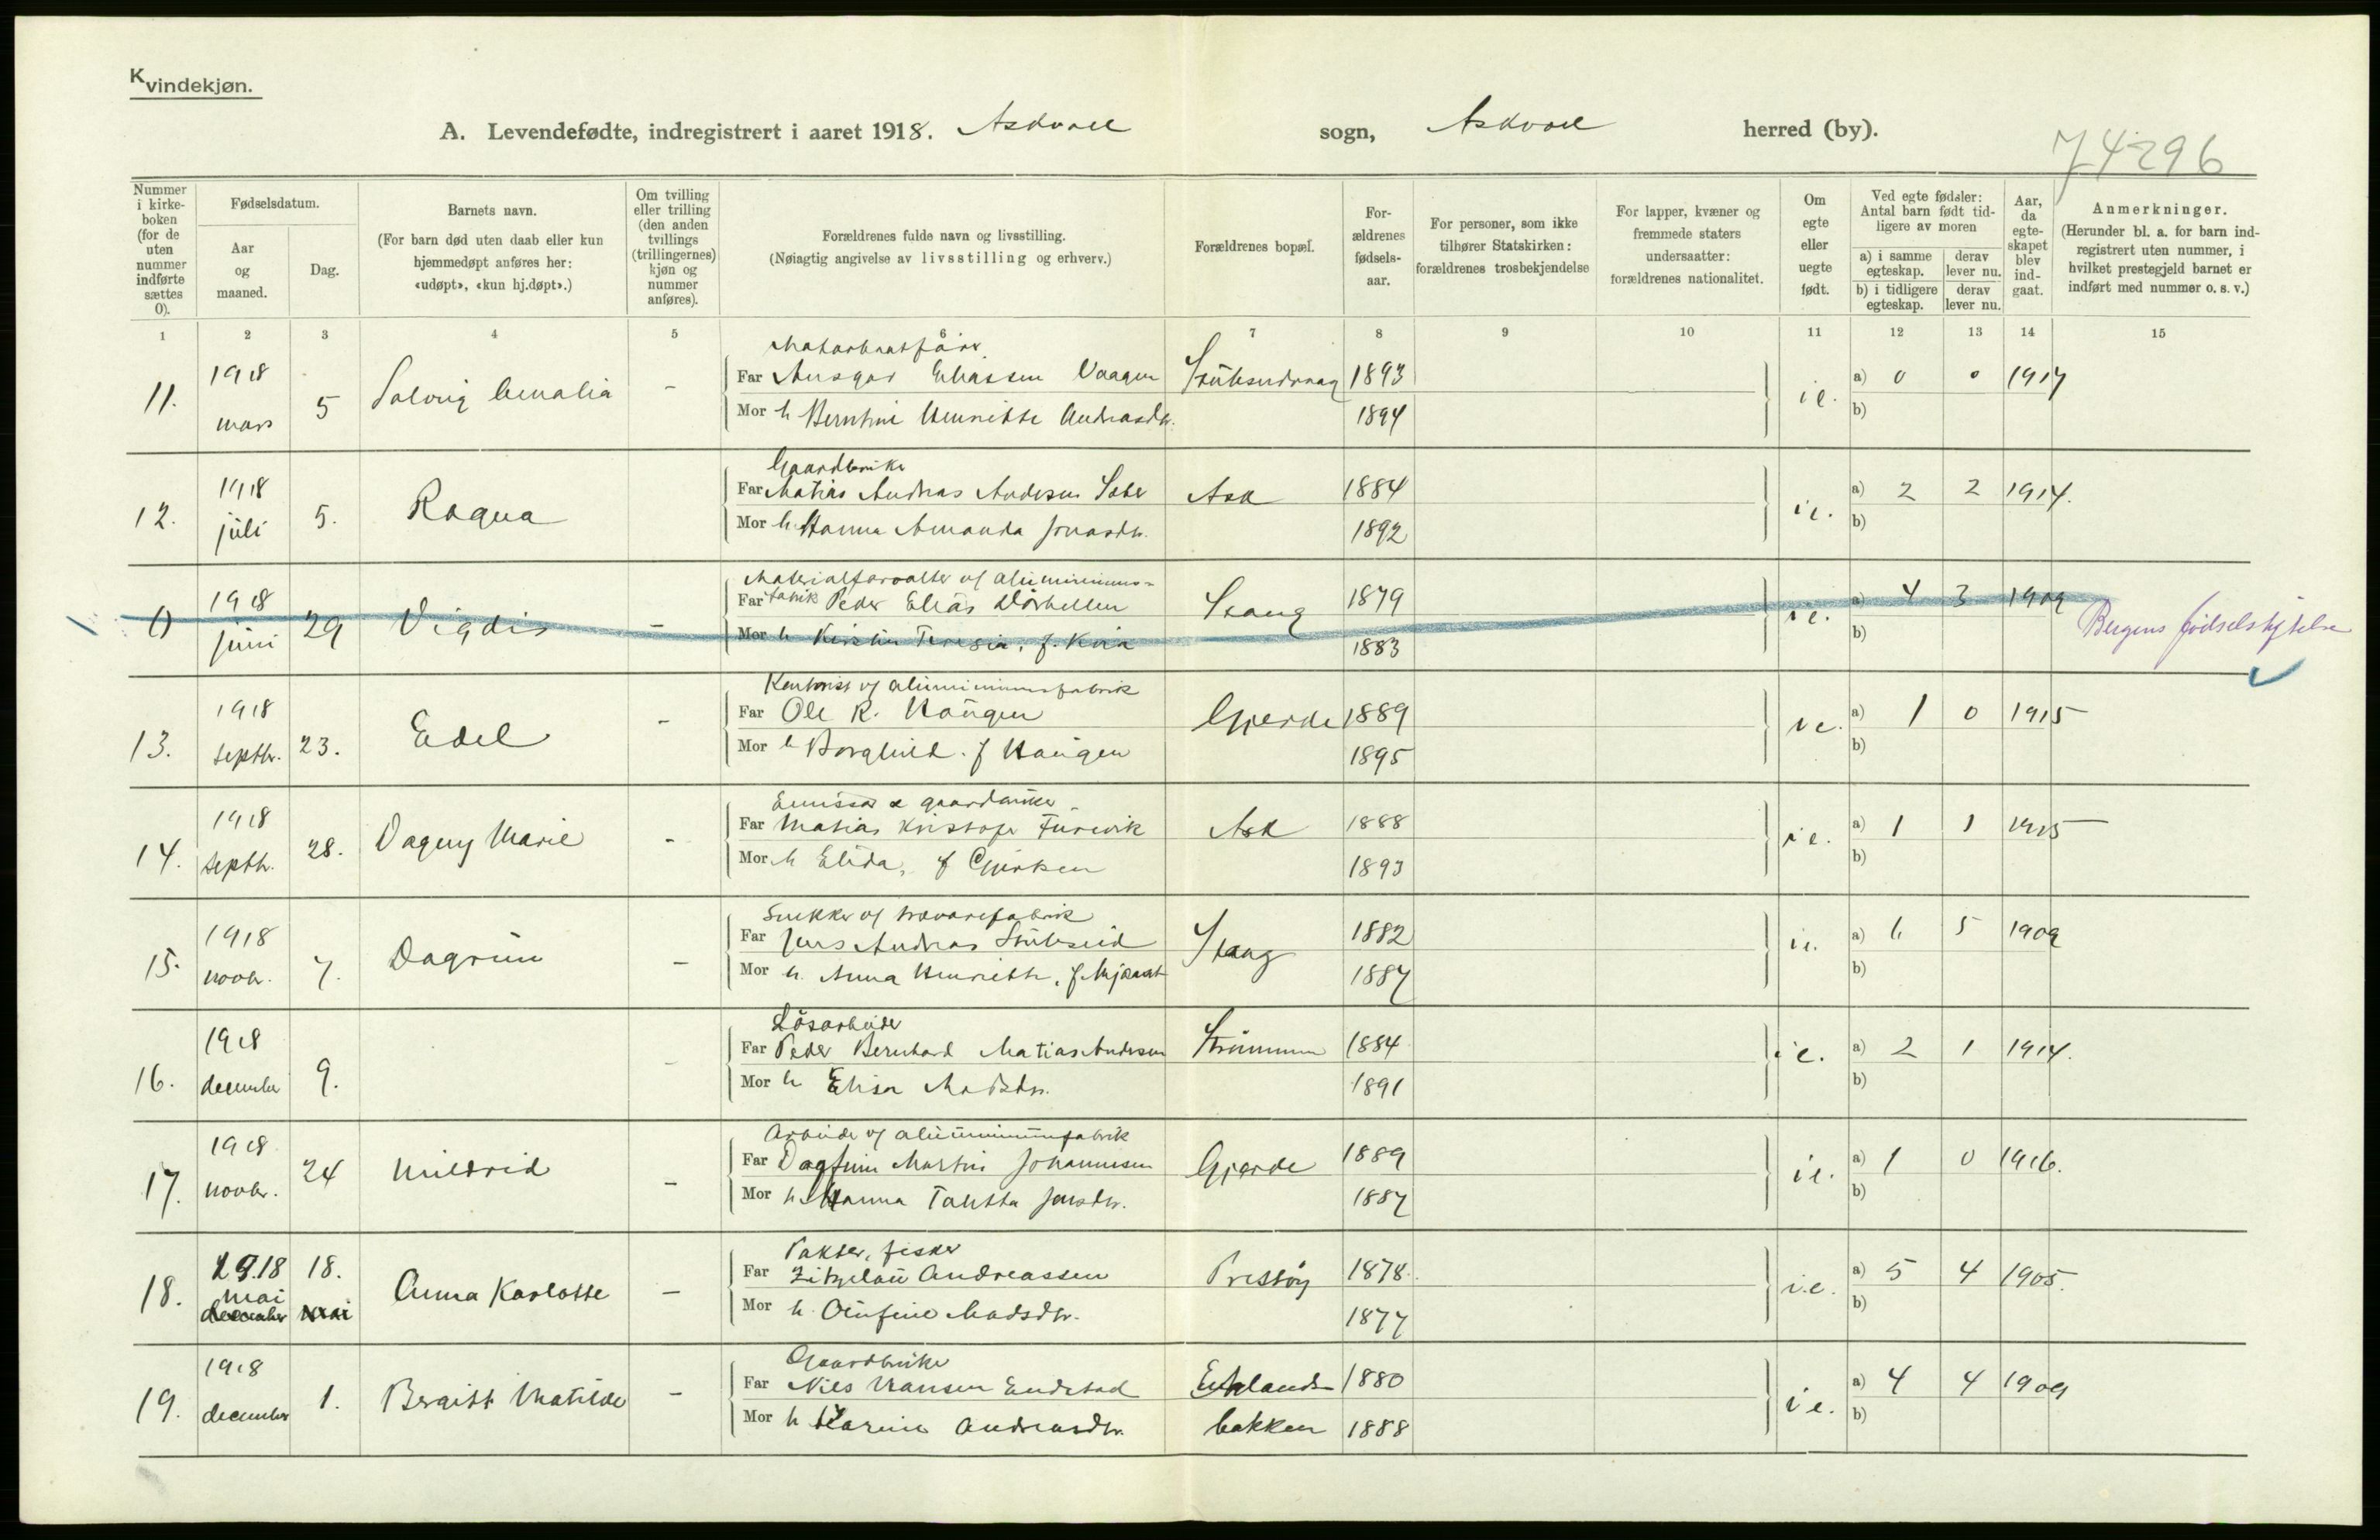 Kvindekjøn.
A. Levendefødte, indregistrert i aaret 1918. Askvoll sogn, Askvoll herred (by).
74296
Nummer i kirkeboken (for de uten nummer indførte sættes 0).
Fødselsdatum.
Aar og maaned.
Dag.
Barnets navn.
(For barn død uten daab eller kun hjemmedøpt anføres her: «udøpt», «kun hj.døpt».)
Om tvilling eller trilling (den anden tvillings (trillingernes) kjøn og nummer anføres).
Forældrenes fulde navn og livsstilling.
(Nøiagtig angivelse av livsstilling og erhverv.)
Forældrenes bopæl.
Forældrenes fødselsaar.
For personer, som ikke tilhører Statskirken: forældrenes trosbekjendelse
For lapper, kvæner og fremmede staters undersaatter: forældrenes nationalitet.
Om egte eller uegte født.
Ved egte fødsler: Antal barn født tidligere av moren
a) i samme egteskap.
derav lever nu.
b) i tidligere egteskap.
derav lever nu.
Aar, da egteskapet blev indgaat.
Anmerkninger.
(Herunder bl. a. for barn indregistrert uten nummer, i hvilket prestegjeld barnet er indført med nummer o. s. v.)
1 2 3 4 5 6 7 8 9 10 11 12 13 14 15
11. 1918 mars 5 Solveig Amalia -
Far Ansgar Eliassen Vaagen 1893
Mor h Berntine Henriette Andreasdtr. 1894
i e. a) 0 0 1917
b)
12. 1918 juli 5. Ragna
Gaardbruker
Far Matias Andreas Andersen Ask 1884
Mor h. Hanna Amanda Jonasdtr. 1892
i e. a) 2 2 1914.
b)
0 1918 juni 29 Vigdis -
Materialforvalter v/ aluminiums-
Far fabrik Peder Elias Stang 1879
Mor h Teresia, f. 1883
i e. a) 4 3 1909
b)
Bergens fødselsstiftelse
13. 1918 septbr. 23. Edel -
Kontorist v/ aluminiumsfabrik
Far Ole R. Haugen Gjerde 1889
Mor h Borghild. f Haugen 1895
i e. a) 1 0 1915
b)
14. 1918 septbr. 28. Dagny Marie -
Emissær & gaardbruker
Far Matias Kristofer Furevik Ask 1888
Mor h Elida, f 1893
i e. a) 1 1 1915
b)
15. 1918 novbr. 7. Dagrun -
Snekker v/ trævarefabrik
Far Jens Andreas Stubseid Stang 1882
Mor h. Anna Henriette, f. 1887
i e. a) 6 5 1909
b)
16. 1918 december 9. -
Løsarbeider
Far Peder Bernhard Matias Andersen Strømmen 1884
Mor h Elisa Madsdtr. 1891
i e. a) 2 1 1914.
b)
17. 1918 novbr. 24 Mildrid -
Arbeider v/ aluminiumsfabrik
Far Dagfinn Martin Johannesen Gjerde 1889
Mor h. Hanna Tabitha Jensdtr. 1887
i e. a) 1 0 1916.
b)
18. 1918 mai december 18. mai Anna Karlotte -
Pakter, fisker
Far Andreassen Prestøy 1878.
Mor h. Oline Madsdtr. 1877
i.e. a) 5 4 1905.
b)
19. 1918 december 1. Bergitt Matilde -
Gaardbruker
Far Nils Hansen Endestad 1880
Mor h Karine Andreasdtr. bakken 1888
i e. a) 4 4 1909
b)